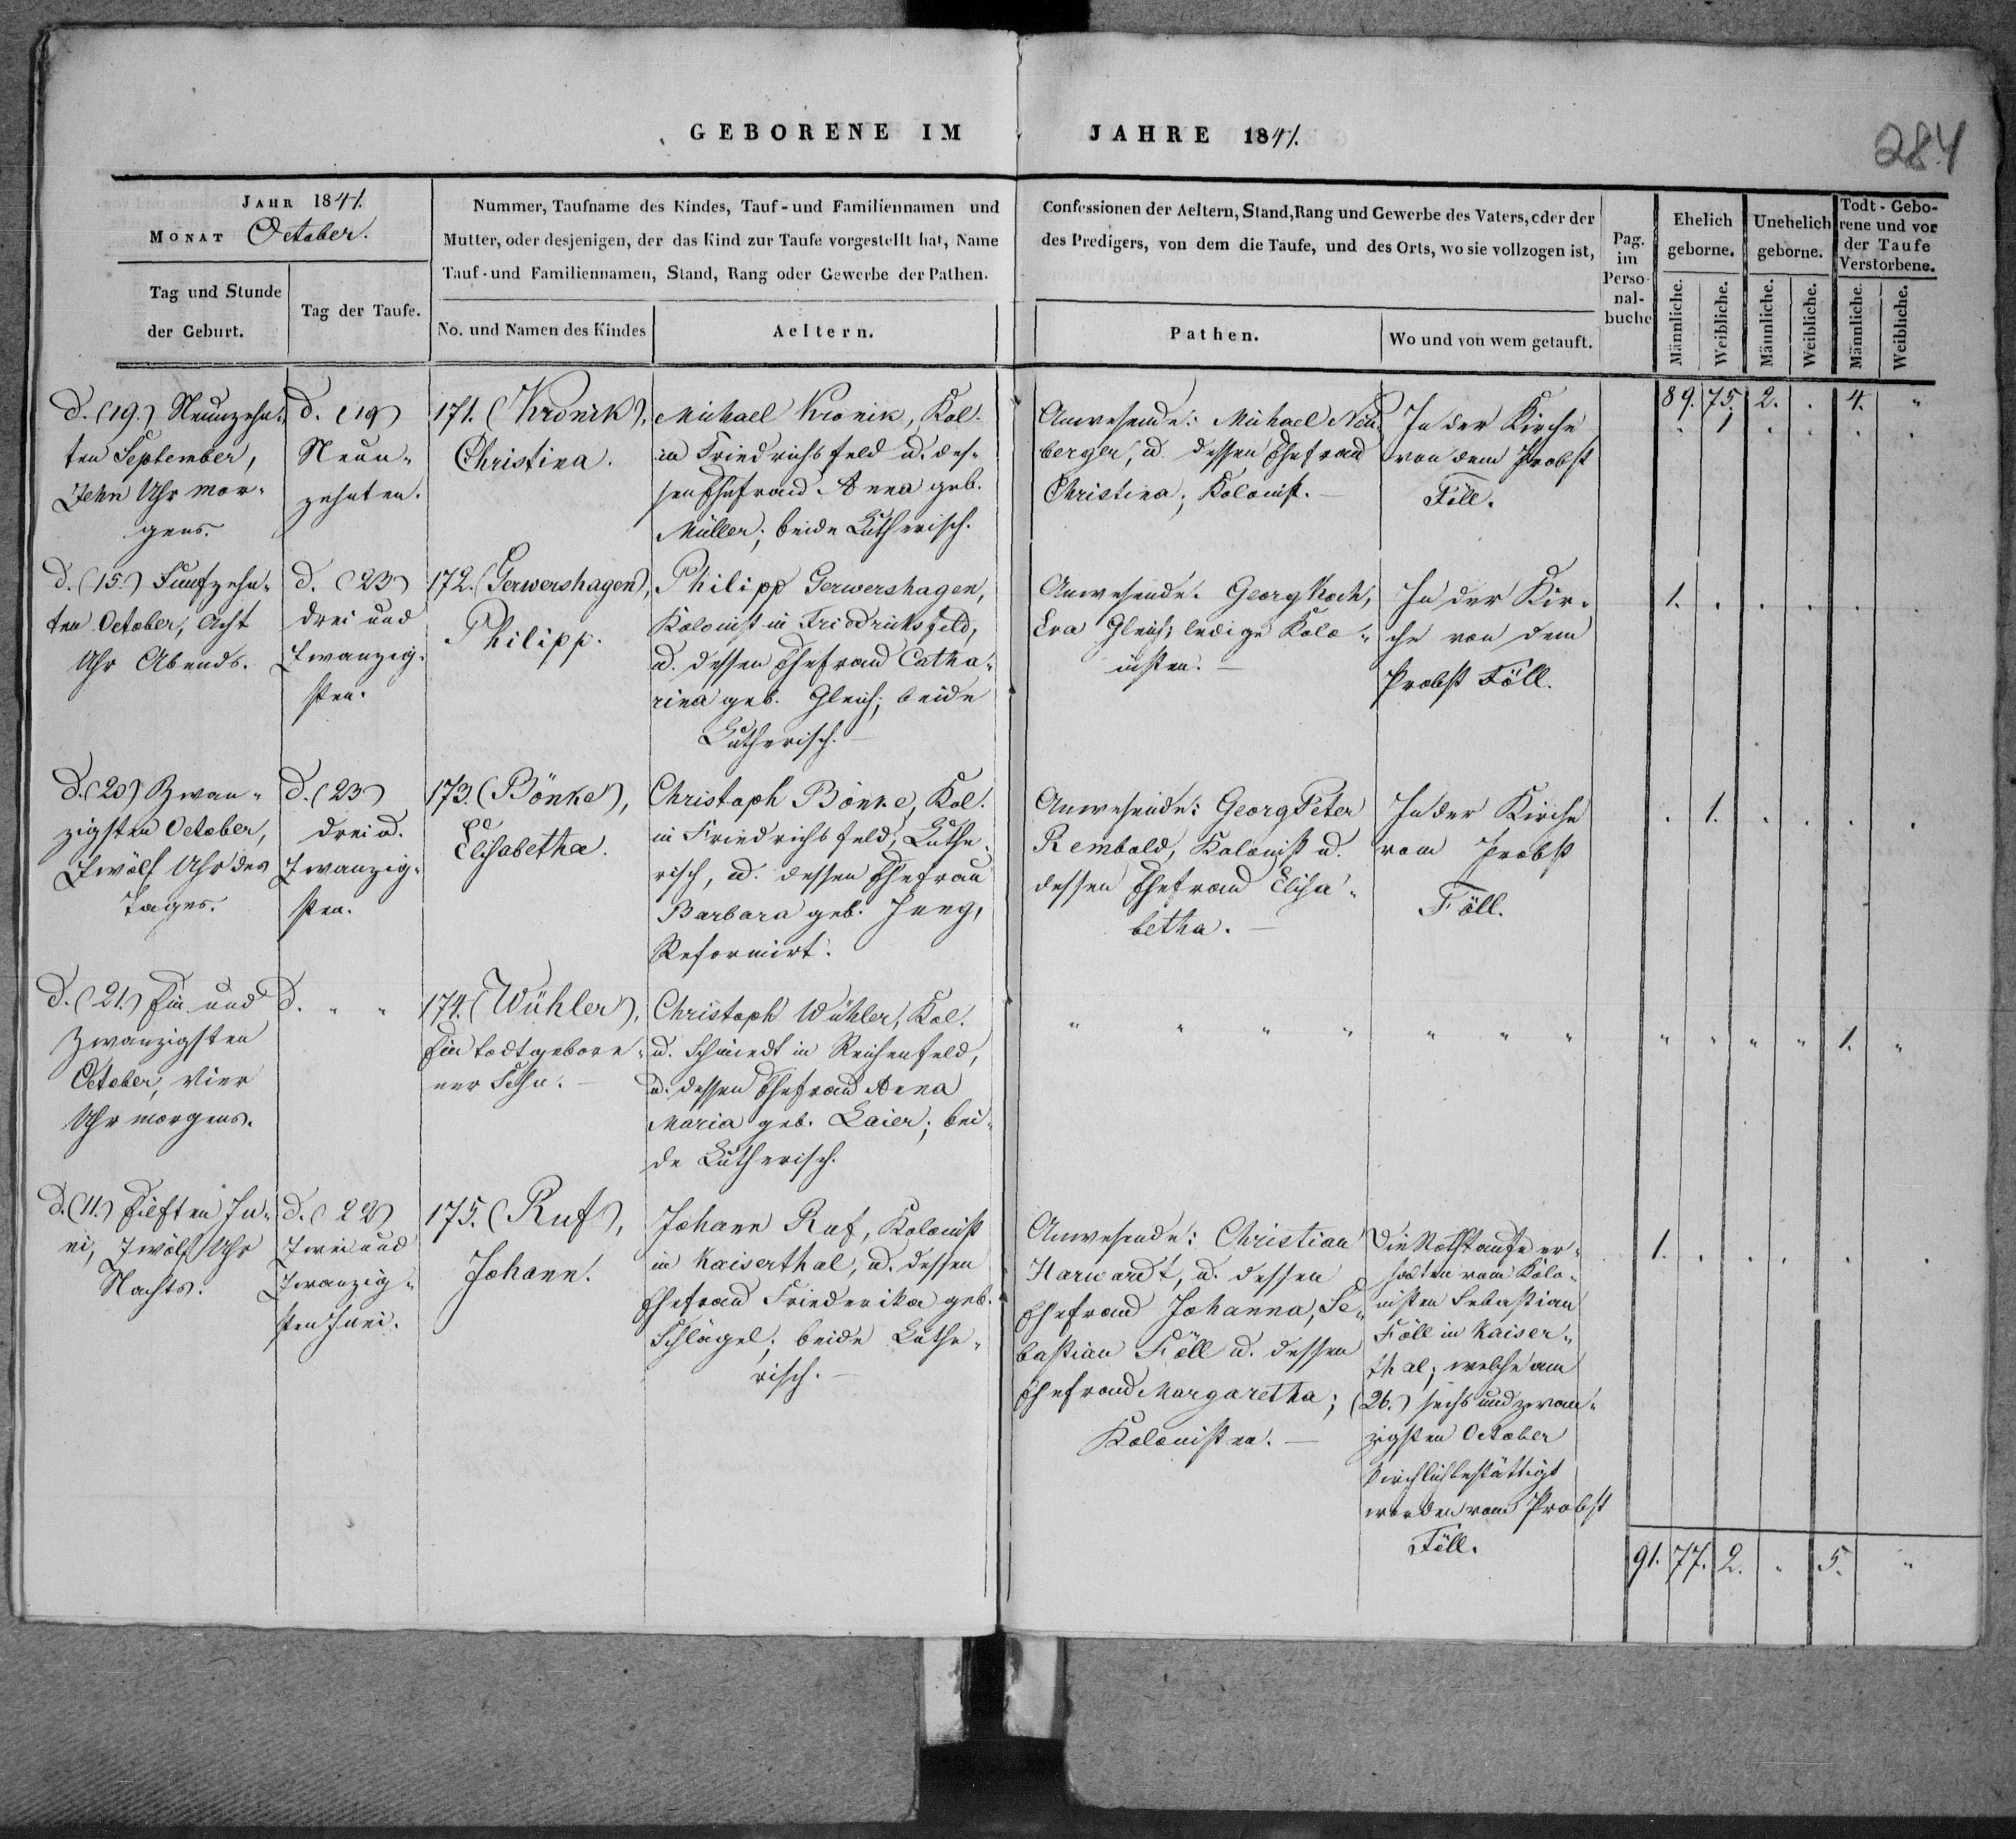 GEBORENE IM JAHRE 1841.
284
JAHR 1841.
MONAT October.
Tag und Stunde
der Geburt.
Tag der Taufe.
Nummer, Taufname des Kindes, Tauf- und Familiennamen und
Mutter, oder desjenigen, der das Kind zur Taufe vorgestellt hat, Name
Tauf- und Familiennamen, Stand, Rang oder Gewerbe der Pathen.
No. und Namen des Kindes
Aeltern.
Confessionen der Aeltern, Stand, Rang und Gewerbe des Vaters, oder der
des Predigers, von dem die Taufe, und des Orts, wo sie vollzogen ist,
Pathen.
Wo und von wem getauft.
Pag.
im
Perso-
nal-
buche
Ehelich
geborne.
Unehelich
geborne.
Todt-Gebo-
rene und vor
der Taufe
Verstorbene.
Männliche.
Weibliche.
Männliche.
Weibliche.
Männliche.
Weibliche.
89. 75. 2. . 4. "
d. (19.) Neunzehn-
ten September,
Zehn Uhr mor-
gens.
d. (19)
Neun-
zehnten.
171. (Kronik),
Christina.
Michael Kronik, Kol.
in Friedrichsfeld u. des-
sen Ehefrau Anna geb.
Müller; beide Lutherisch.
Anwesende: Michael Neu-
berger, u. dessen Ehefrau
Christina; Kolonist. —
In der Kirche
von dem Probst
Föll.
. 1 . . . .
d. (15.) Funfzehn-
ten October, Acht
Uhr Abends.
d. (23)
drei und
Zwanzig-
sten.
172. (Gerwershagen),
Philipp.
Philipp Gerwershagen,
Kolonist in Friedrichsfeld,
u. dessen Ehefrau Catha-
rina geb. Gleich; beide
Lutherisch. —
Anwesende. Georg Koch,
Eva Gleich; ledige Kolo-
nisten. —
In der Kir-
che von dem
Probst Föll.
1. . . . . .
d. (20) Zwan-
zigsten October,
Zwölf Uhr des
Tages.
d. (23)
drei u.
Zwanzig-
sten.
173. (Bönke),
Elisabetha.
Christoph Bönke, Kol.
in Friedrichsfeld, Luthe-
risch, u. dessen Ehefrau
Barbara geb. Jung,
Reformirt.
Anwesende: Georg Peter
Rembold, Kolonist u.
dessen Ehefrau Elisa-
betha. —
In der Kirche
vom Probst
Föll.
. 1. . . . .
d. (21.) Ein und
Zwanzigsten
October, Vier
Uhr morgens.
d. " "
174. (Wühler),
Ein todtgebore-
ner Sohn. —
Christoph Wühler, Kol.
u. Schmiedt in Reichenfeld,
u. dessen Ehefrau Anna
Maria geb. Laier; bei-
de Lutherisch.
" " " " " " "
" " " " 1. "
d. (11.) Eilften Ju-
ni, Zwölf Uhr
Nachts.
d. (22)
Zwei und
Zwanzig-
sten Juni.
175. (Ruf),
Johann.
Johann Ruf, Kolonist
in Kaiserthal, u. dessen
Ehefrau Friederika geb.
Schlägel; beide Luthe-
risch. —
Anwesende: Christian
Harwardt, u. dessen
Ehefrau Johanna, Se-
bastian Föll u. dessen
Ehefrau Margaretha;
Kolonisten. —
Die Nothtaufe er-
halten vom Kolo-
nisten Sebastian
Föll in Kaiser-
thal; welche am
(26.) sechs und zwan-
zigsten October
kirchlich bestättigt
worden vom Probst
Föll.
1. . . . . .
91. 77. 2. " 5. "